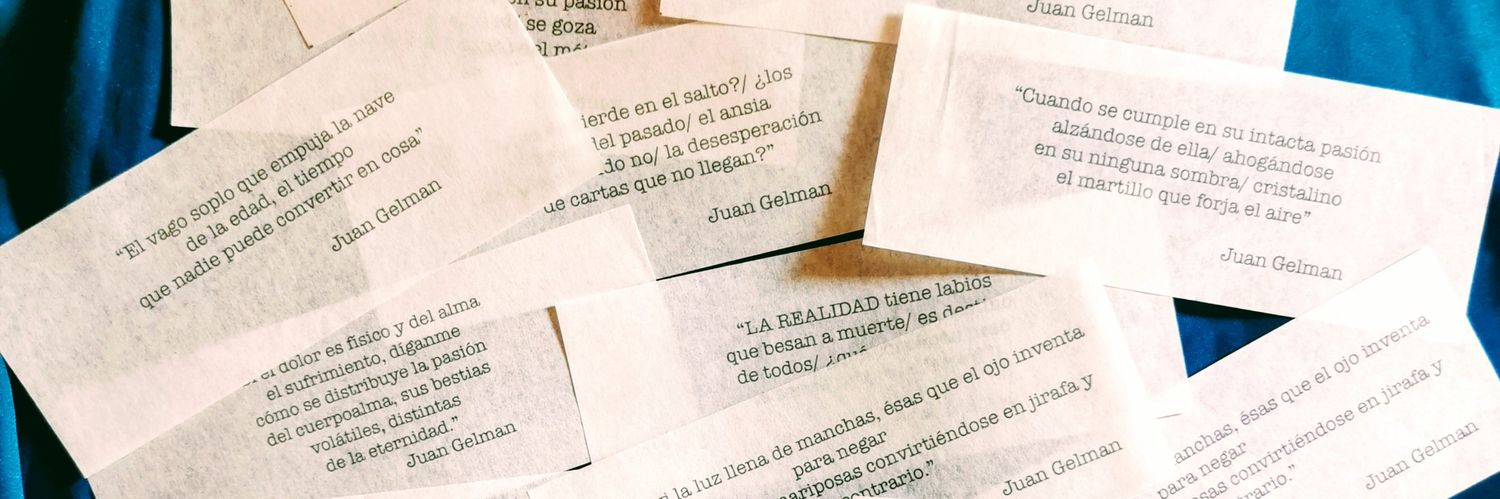 su pasión
se goza
Juan Gelman
"El vago soplo que empuja la nave
de la edad, el tiempo
que nadie puede convertir en cosa"
Juan Gelman
en el salto?/ ¿los
del pasado/ el ansia
no/ la desesperación
cartas que no llegan?"
Juan Gelman
"Cuando se cumple en su intacta pasión
alzándose de ella/ ahogándose
en su ninguna sombra/ cristalino
el martillo que forja el aire"
Juan Gelman
el dolor es físico y del alma
el sufrimiento, díganme
cómo se distribuye la pasión
del cuerpoalma, sus bestias
volátiles, distintas
de la eternidad."
Juan Gelman
"LA REALIDAD tiene labios
que besan a muerte/ es
de todos/
la luz llena de manchas, ésas que el ojo inventa
para negar
convirtiéndose en jirafa y
Juan Gelman
ésas que el ojo inventa
para negar
convirtiéndose en jirafa y
Juan Gelman